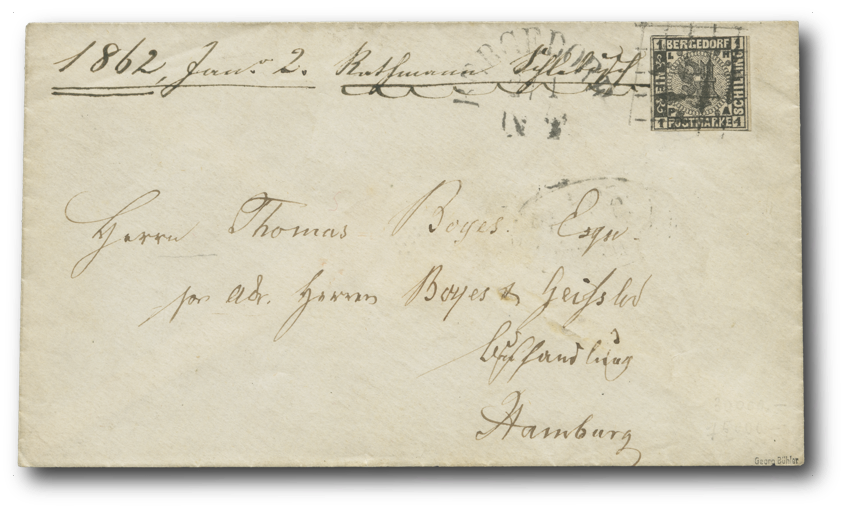 1862, Jan. 2. Rathmann
BERGEDORF
1 BERGEDORF 1
EIN
SCHILLING
1 POSTMARKE 1
Herrn Thomas Boyes. Esqr.
pr adr. Herren Boyes & Geissler
Buchhandlung
Hamburg
Georg Bühler